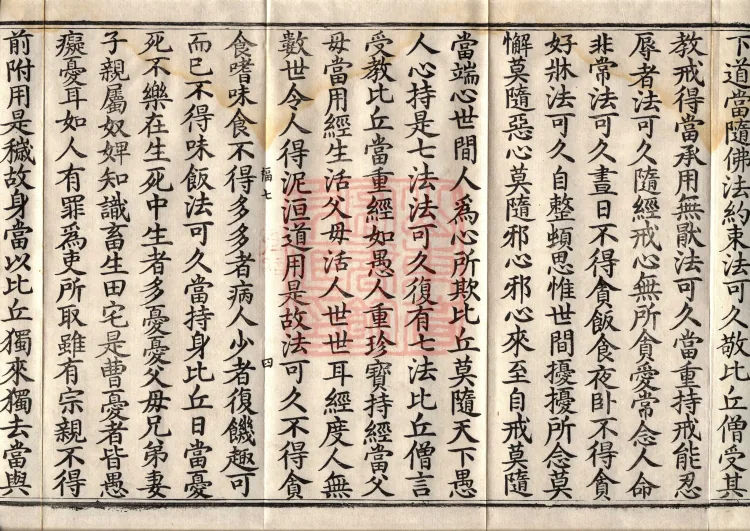 下道當隨佛法約束法可久敬比丘僧受其
教戒得當承用無猒法可久當重持戒能忍
辱者法可久隨經戒心無所貪愛常念人命
非常法可久晝日不得貪飯食夜卧不得貪
好牀法可久自整頓思惟世間擾擾所念莫
懈莫隨惡心莫隨邪心邪心來至自戒莫隨
當端心世間人爲心所欺比丘莫隨天下愚
人心持是七法法可久復有七法比丘僧言
受教比丘當重經如愚人重珍寶持經當父
母當用經生活父母活人世世耳經度人無
數世令人得泥洹道用是故法可久不得貪
福七
四
食嗜味食不得多多者病人少者復饑趣可
而已不得味飯法可久當持身比丘日當憂
死不樂在生死中生者多憂憂父母兄弟妻
子親屬奴婢知識畜生田宅是曹憂者皆愚
癡憂耳如人有罪爲吏所取雖有宗親不得
前附用是穢故身當以比丘獨來獨去當與